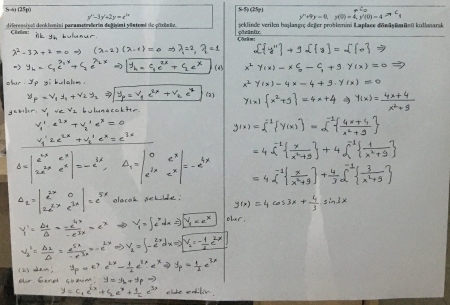 S-4) (25p)
y''-3y'+2y = e³ˣ
diferensiyel denklemini parametrelerin değişimi yöntemi ile çözünüz.
Çözüm:
İlk yh bulunur.
λ²-3λ+2=0 => (λ-2)(λ-1)=0 => λ=2, λ=1
=> yh = C₁e^λ₁x + C₂e^λ₂x => yh = C₁e²ˣ + C₂eˣ (1)
olur. yp yi bulalım.
yp = V₁y₁ + V₂y₂ => yp = V₁e²ˣ + V₂eˣ (2)
V₁ ve V₂ bulunacaktır.
V₁' e²ˣ + V₂' eˣ = 0
V₁' 2e²ˣ + V₂' eˣ = e³ˣ
Δ = |e²ˣ eˣ; 2e²ˣ eˣ| = -e³ˣ, Δ₁ = |0 eˣ; e³ˣ eˣ| = -e⁴ˣ
Δ₂ = |e²ˣ 0; 2e²ˣ e³ˣ| = e⁵ˣ olacak şekilde;
V₁' = Δ₁/Δ = -e⁴ˣ/-e³ˣ = eˣ => V₁ = ∫eˣdx => V₁ = eˣ
V₂' = Δ₂/Δ = e⁵ˣ/-e³ˣ = -e²ˣ => V₂ = ∫-e²ˣdx => V₂ = -1/2 e²ˣ
(2) den; yp = eˣ e²ˣ - 1/2 e²ˣ eˣ => yp = 1/2 e³ˣ
olur. Genel çözüm, y = yh + yp =>
y = C₁e²ˣ + C₂eˣ + 1/2 e³ˣ elde edilir.
S-5) (25p)
y''+9y = 0, y(0) = 4, y'(0) = 4
şeklinde verilen başlangıç değer problemini Laplace dönüşümünü kullanarak
çözünüz.
Çözüm:
L{y''} + 9L{y} = L{0} =>
x² Y(x) - xC₀ - C₁ + 9.Y(x) = 0 =>
x² Y(x) - 4x - 4 + 9.Y(x) = 0
Y(x){x²+9} = 4x+4 => Y(x) = 4x+4/x²+9
y(x) = L⁻¹{Y(x)} = L⁻¹{4x+4/x²+9}
= 4 L⁻¹{x/x²+9} + 4 L⁻¹{1/x²+9}
= 4 L⁻¹{x/x²+9} + 4/3 L⁻¹{3/x²+9}
y(x) = 4 cos3x + 4/3 sin3x
olur.